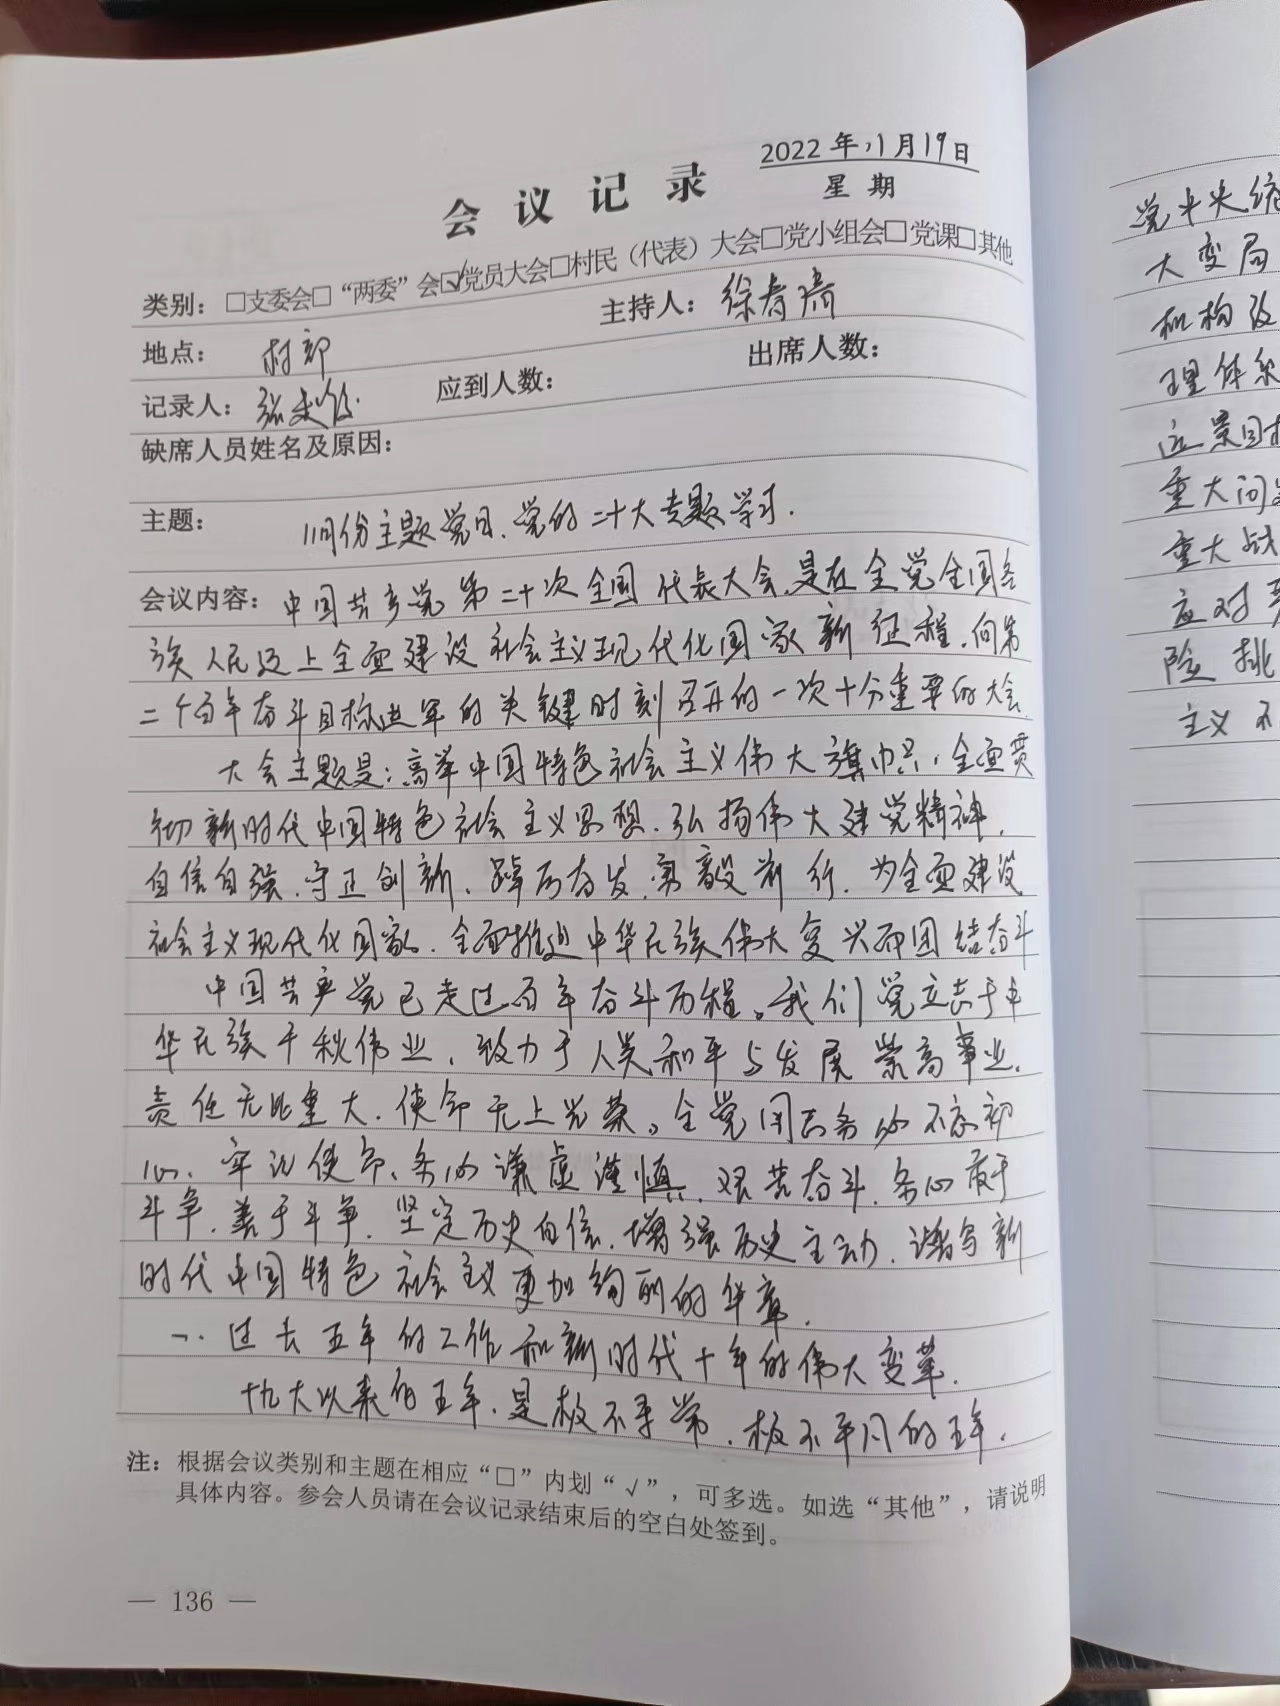 会议记录
2022年11月19日
星期
类别：□支委会□“两委”会☑党员大会□村民（代表）大会□党小组会□党课□其他
地点： 村部 主持人：徐春
记录人：张 应到人数： 出席人数：
缺席人员姓名及原因：
主题： 11月份主题党日、党的二十大专题学习．
会议内容：中国共产党第二十次全国代表大会，是在全党全国各
族人民迈上全面建设社会主义现代化国家新征程，向第
二个百年奋斗目标进军的关键时刻召开的一次十分重要的大会．
大会主题是：高举中国特色社会主义伟大旗帜，全面贯
彻新时代中国特色社会主义思想．弘扬伟大建党精神，
自信自强、守正创新，踔厉奋发、勇毅前行．为全面建设
社会主义现代化国家、全面推进中华民族伟大复兴而团结奋斗
中国共产党已走过百年奋斗历程。我们党立志于中
华民族千秋伟业，致力于人类和平与发展崇高事业，
责任无比重大，使命无上光荣。全党同志务必不忘初
心、牢记使命，务必谦虚谨慎、艰苦奋斗，务必敢于
斗争、善于斗争，坚定历史自信，增强历史主动，谱写新
时代中国特色社会主义更加绚丽的华章．
一．过去五年的工作和新时代十年的伟大变革．
十九大以来的五年，是极不寻常、极不平凡的五年．
注：根据会议类别和主题在相应“□”内划“√”，可多选。如选“其他”，请说明
具体内容。参会人员请在会议记录结束后的空白处签到。
— 136 —
党中央统
大变局
机构改
理体系
远景目标
重大问
重大战
应对
险挑
主义不